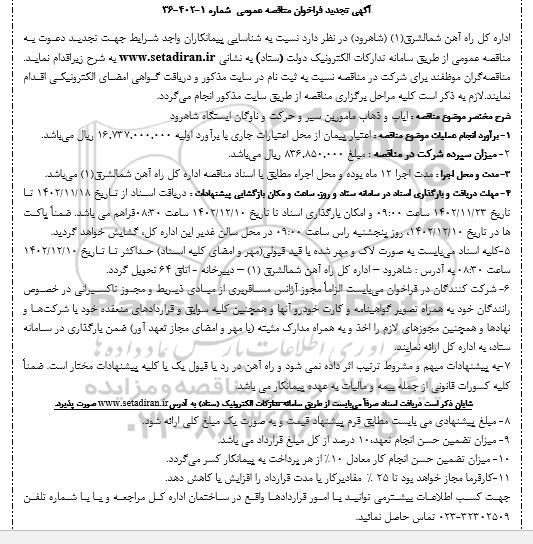 آگهی تجدید فراخوان مناقصه عمومی شماره ۱-۴۰۲-۳۶
اداره کل راه آهن شمالشرق(۱) (شاهرود) در نظر دارد نسبت به شناسایی پیمانکاران واجد شرایط جهت تجدید دعوت به
مناقصه عمومی از طریق سامانه تدارکات الکترونیک دولت (ستاد) به نشانی www.setadiran.ir به شرح زیراقدام نماید.
مناقصه‌گران موظفند برای شرکت در مناقصه نسبت به ثبت نام در سایت مذکور و دریافت گواهی امضای الکترونیکی اقدام
نمایند.لازم به ذکر است کلیه مراحل برگزاری مناقصه از طریق سایت مذکور انجام می‌گردد.
شرح مختصر موضوع مناقصه : ایاب و ذهاب مامورین سیر و حرکت و ناوگان ایستگاه شاهرود
۱- برآورد انجام عملیات موضوع مناقصه : اعتبار پیمان از محل اعتبارات جاری با برآورد اولیه ۱۶,۷۳۷,۰۰۰,۰۰۰ ریال می‌باشد.
۲-میزان سپرده شرکت در مناقصه : مبلغ ۸۳۶,۸۵۰,۰۰۰ ریال می‌باشد.
۳-مدت و محل اجرا : مدت اجرا ۱۲ ماه بوده و محل اجراء مطابق با اسناد مناقصه اداره کل راه آهن شمالشرق(۱) می‌باشد.
۴-مهلت دریافت و بارگذاری اسناد در سامانه ستاد و روز، ساعت و مکان بازگشایی پیشنهادات : دریافت اسناد از تاریخ ۱۴۰۲/۱۱/۱۸ تا
تاریخ ۱۴۰۲/۱۱/۲۳ ساعت ۰۹:۰۰ و امکان بارگذاری اسناد تا تاریخ ۱۴۰۲/۱۲/۱۰ ساعت ۰۸:۳۰فراهم می باشد. ضمناً پاکت
ها در تاریخ ۱۴۰۲/۱۲/۱۰، روز پنجشنبه راس ساعت ۰۹:۰۰ در محل سالن غدیر این اداره کل، گشایش خواهد گردید.
۵-کلیه اسناد می‌بایست به صورت لاک و مهر شده با قید قبولی(مهر و امضای کلیه اسناد) حداکثر تا تاریخ ۱۴۰۲/۱۲/۱۰
ساعت ۰۸:۳۰ به آدرس : شاهرود – اداره کل راه آهن شمالشرق (۱) – دبیرخانه - اتاق ۶۴ تحویل گردد.
۶- شرکت کنندگان در فراخوان می‌بایست الزاماً مجوز آژانس مسافربری از مبادی ذیربط و مجوز تاکسیرانی در خصوص
رانندگان خود به همراه تصویر گواهینامه و کارت خودرو آنها و همچنین کلیه سوابق و قراردادهای منعقده خود با شرکت‌ها و
نهادها و همچنین مجوزهای لازم را اخذ و به همراه مدارک مثبته (با مهر و امضای مجاز تعهد آور) ضمن بارگذاری در سامانه
ستاد، به اداره کل ارائه نمایند.
۷-به پیشنهادات مبهم و مشروط ترتیب اثر داده نمی شود و راه آهن در رد یا قبول یک یا کلیه پیشنهادات مختار است. ضمناً
کلیه کسورات قانونی از جمله بیمه و مالیات به عهده پیمانکار می باشد.
شایان ذکر است دریافت اسناد صرفاً می‌بایست از طریق سامانه تدارکات الکترونیک (ستاد) به آدرس www.setadiran.ir صورت پذیرد.
۸- مبلغ پیشنهادی می بایست مطابق فرم پیشنهاد قیمت و به صورت یک مبلغ کلی ارائه شود.
۹- میزان تضمین حسن انجام تعهد،۱۰ درصد از کل مبلغ قرارداد می باشد.
۱۰- میزان تضمین حسن انجام کار معادل ۱۰٪ از هر پرداخت به پیمانکار کسر می‌گردد.
۱۱-کارفرما مجاز خواهد بود تا ۲۵ ٪ مقادیرکار یا مدت قرارداد را افزایش یا کاهش دهد.
جهت کسب اطلاعات بیشترمی توانید با امور قراردادها واقع در ساختمان اداره کل مراجعه و یا با شماره تلفن
۰۲۳-۳۲۳۰۲۵۰۹ تماس حاصل نمائید.